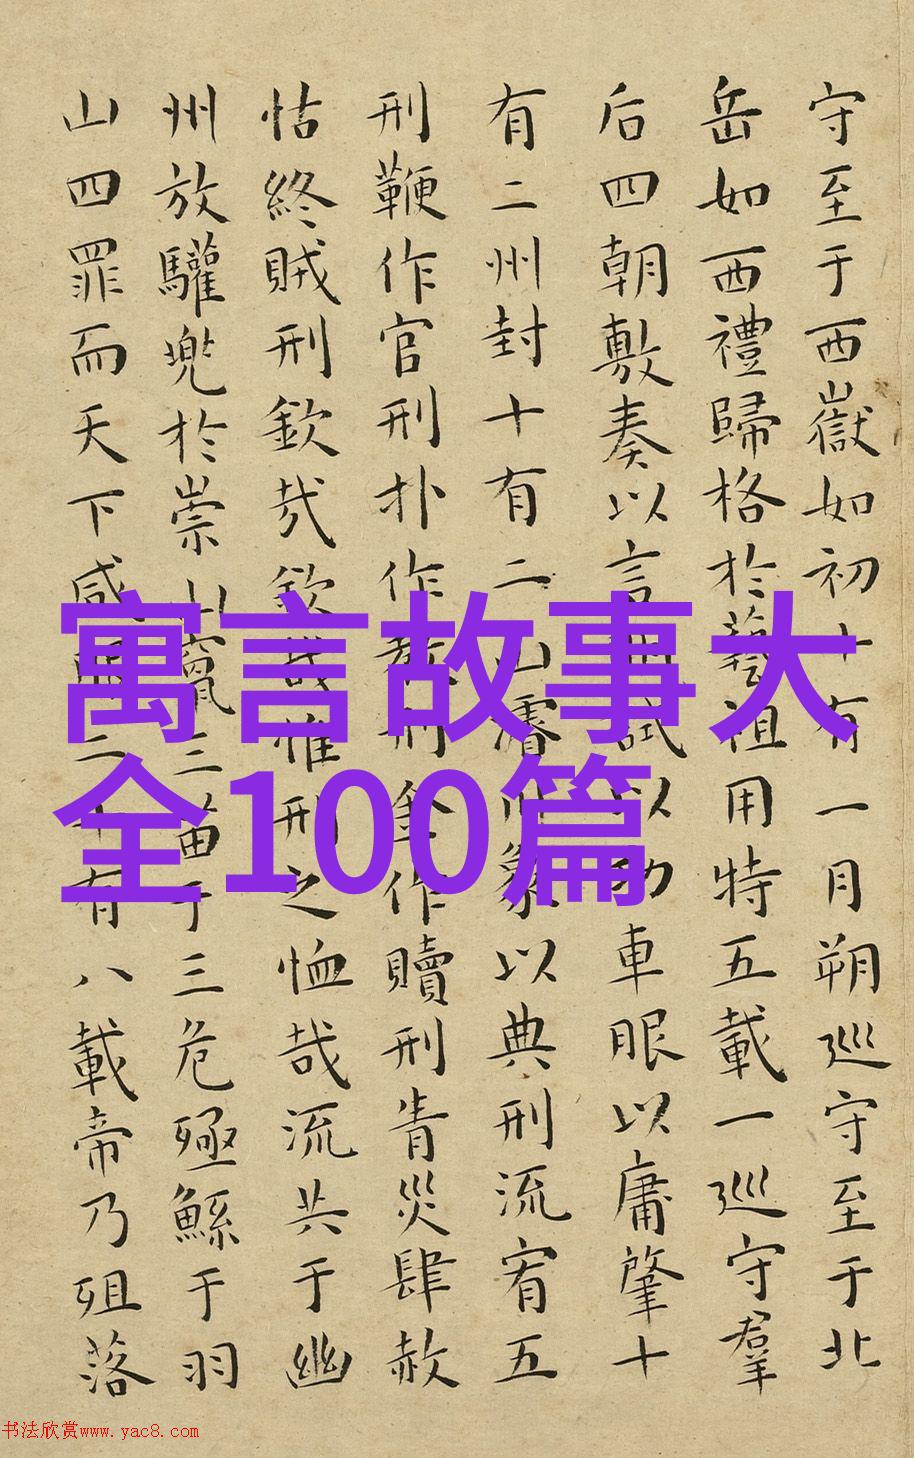 寓言故事大
全100篇
守至于西嶽如初十有一月朔巡守至于北
岳如西禮歸格於藝祖用特五載一巡守羣
后四朝敷奏以言試以功車眼以庸肇十
有二州封十有二山濬川象以典刑流宥五
刑鞭作官刑扑作教刑金作贖刑眚災肆赦
怙終賊刑欽哉欽哉惟刑之恤哉流共于幽
州放驩兜於崇山竄三苗于三危殛鯀于羽
山四罪而天下咸二十有八載帝乃殂落
书法欣赏www.yac8.com